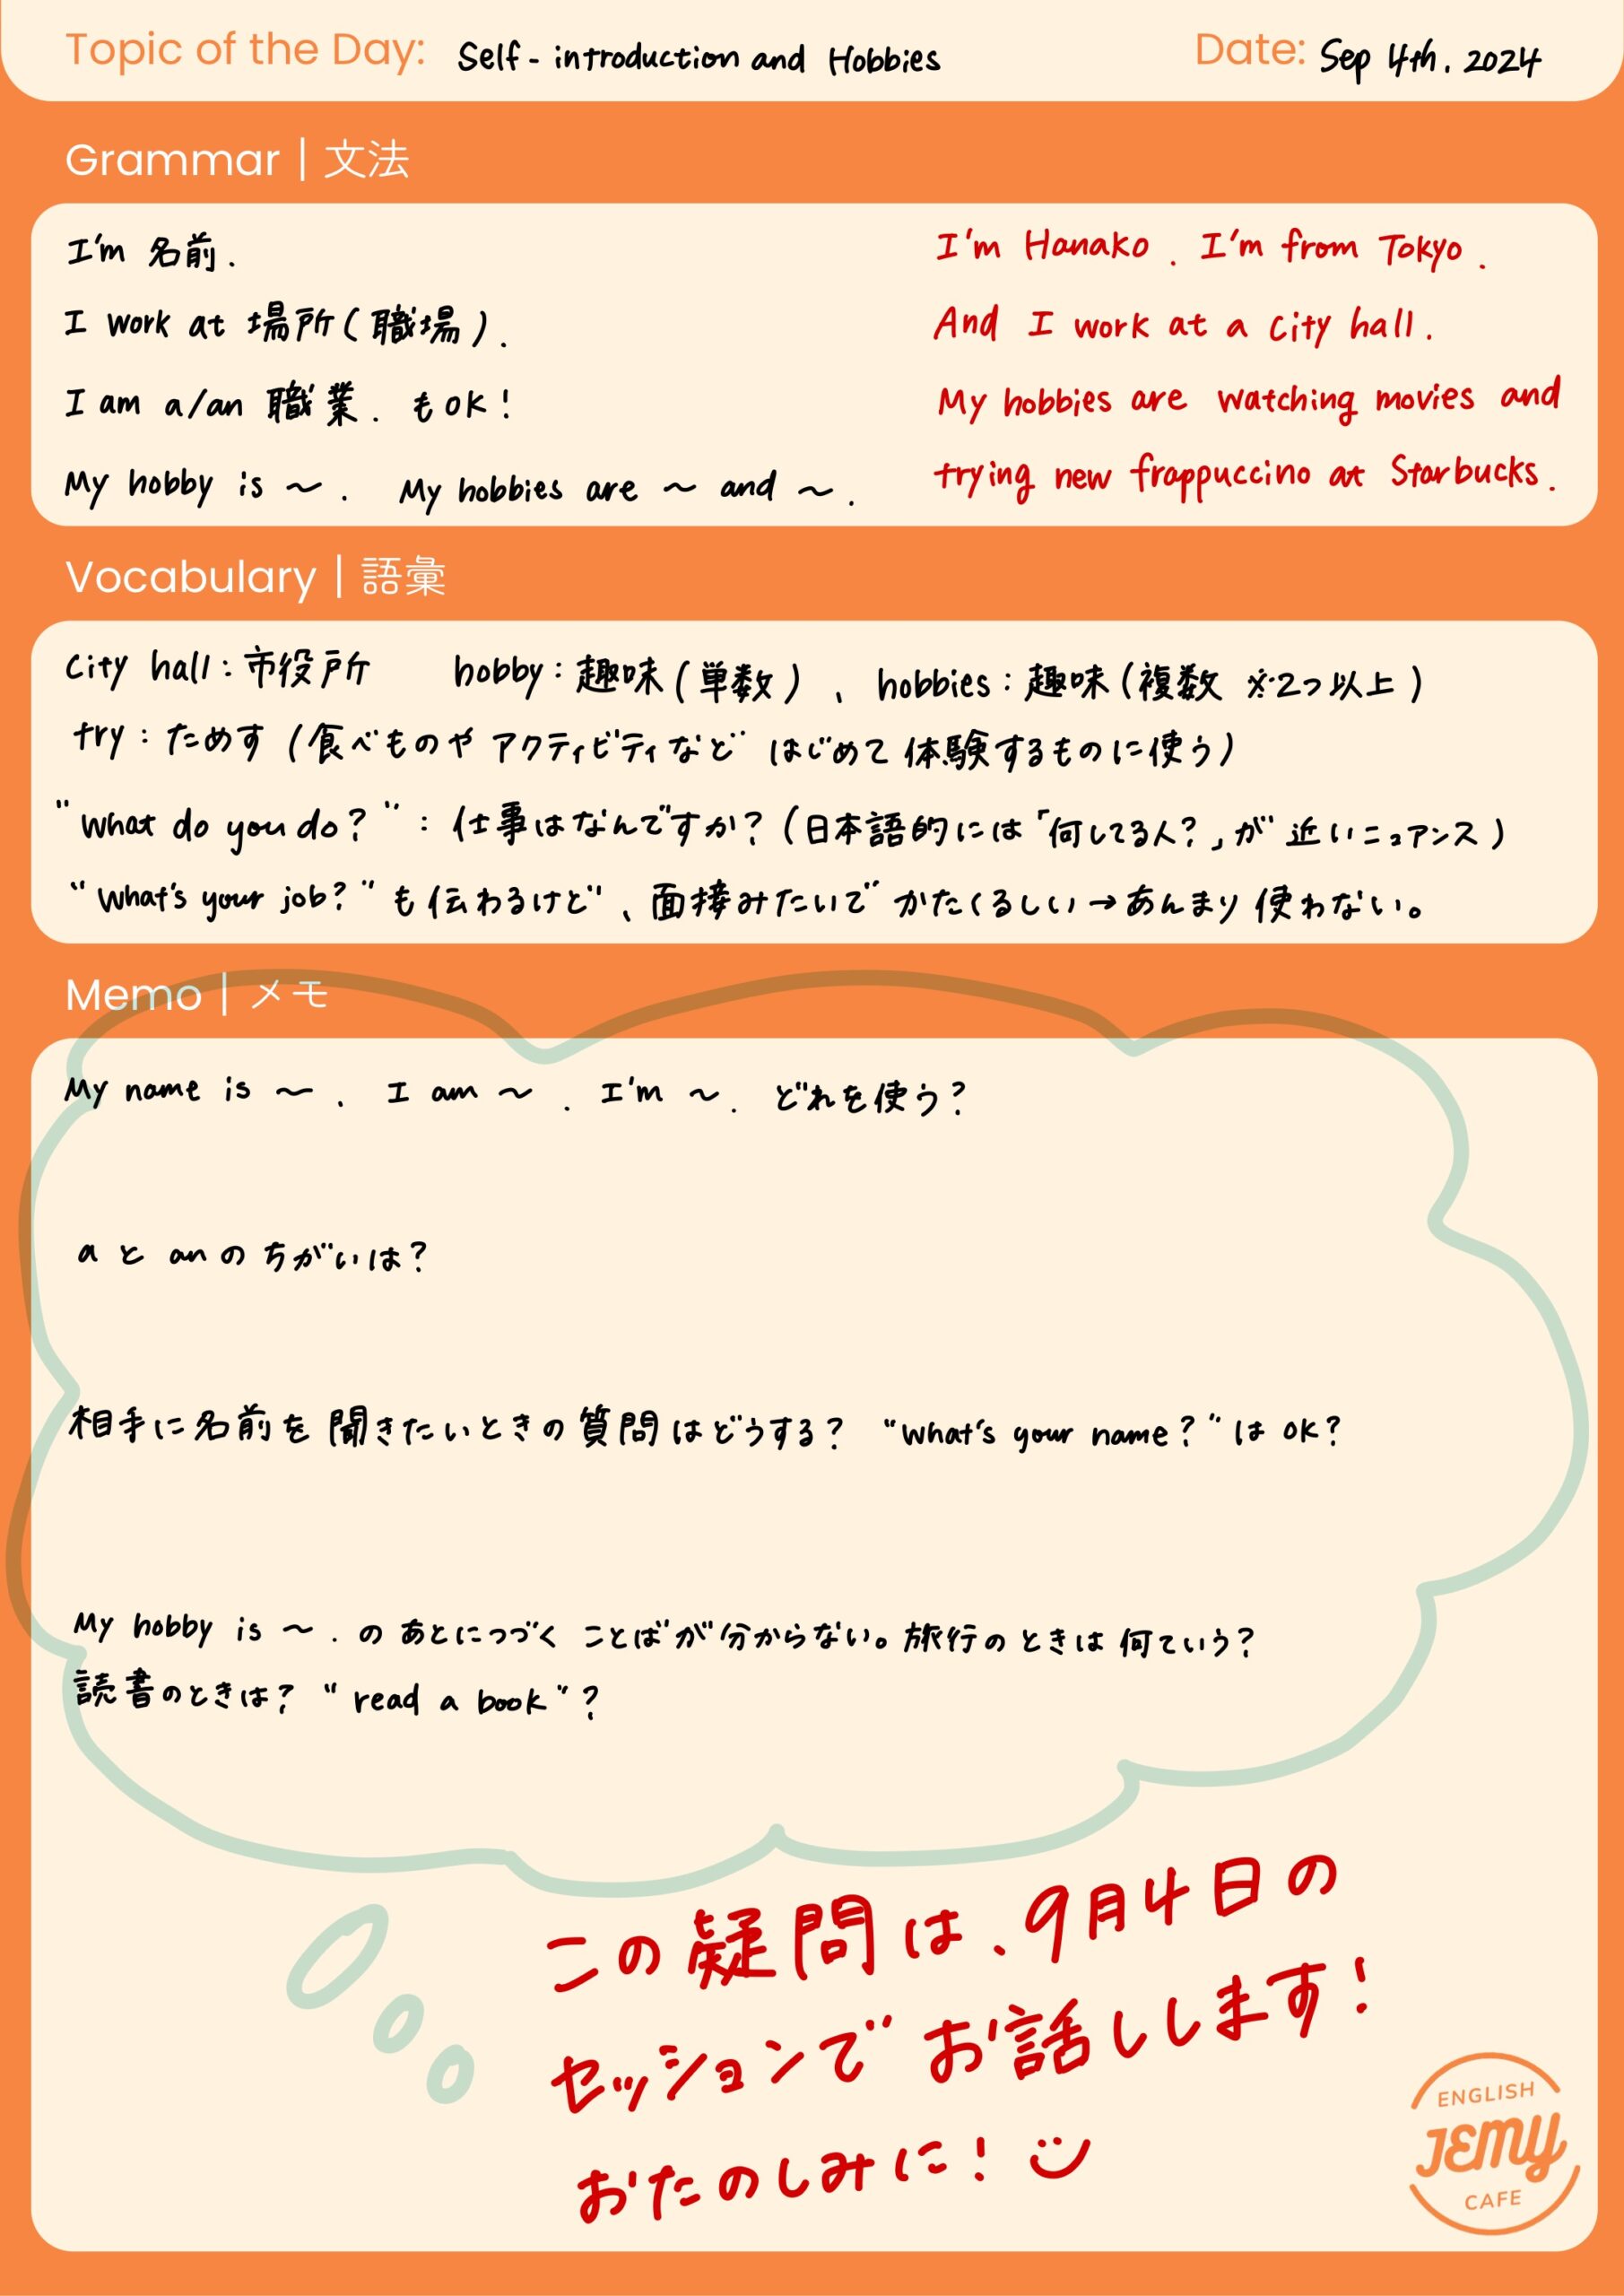 Topic of the Day: Self-introduction and Hobbies
Date: Sep 4th. 2024
Grammar | 文法
I'm 名前.
I work at 場所(職場).
I am a/an 職業. もOK!
My hobby is ~. My hobbies are ~ and ~.
I'm Hanako. I'm from Tokyo.
And I work at a city hall.
My hobbies are watching movies and
trying new frappuccino at Starbucks.
Vocabulary | 語彙
city hall:市役所 hobby:趣味(単数)、hobbies:趣味(複数 ※2つ以上)
try:ためす(食べものやアクティビティなど はじめて体験するものに使う)
"What do you do?":仕事はなんですか?(日本語的には「何してる人?」が近いニュアンス)
"What's your job?"も伝わるけど、面接みたいでかたくるしい→あんまり使わない。
Memo | メモ
My name is ~. I am ~. I'm ~. どれを使う?
aとanのちがいは?
相手に名前を聞きたいときの質問はどうする? "What's your name?"はOK?
My hobby is ~.のあとにつづくことばが分からない。旅行のときは何ていう?
読書のときは? "read a book"?
この疑問は、9月4日の
セッションでお話しします!
おたのしみに!
ENGLISH
JEMY
CAFE